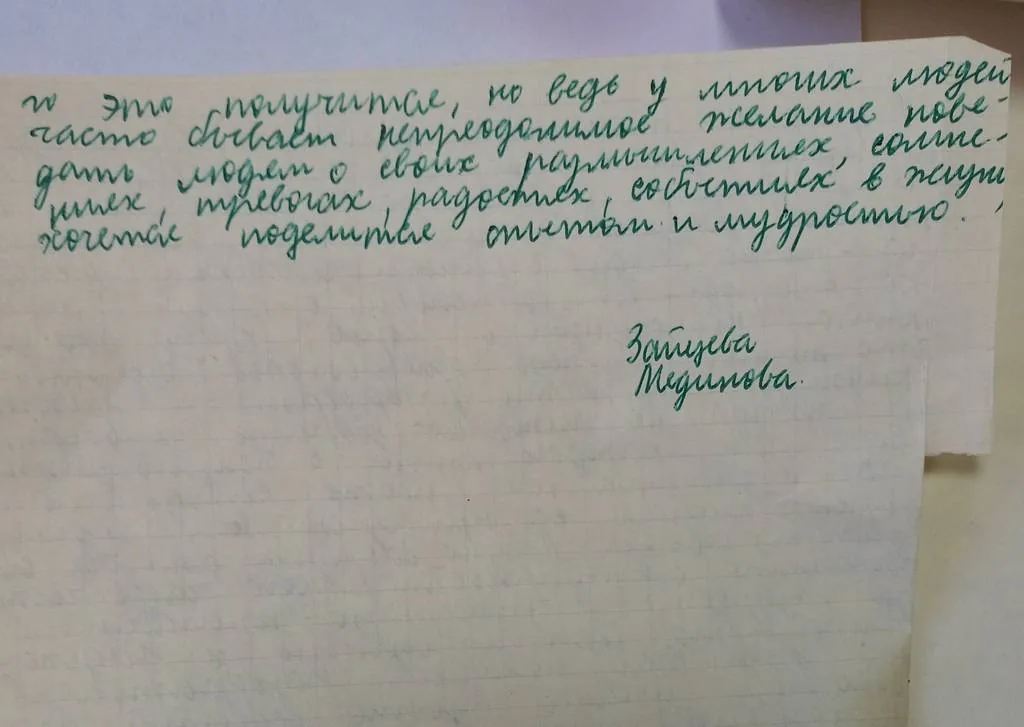 го это получится, но ведь у многих людей
часто бывает непреодолимое желание пове-
дать людям о своих размышлениях, сомне-
ниях, тревогах, радостях, событиях в жизни,
хочется поделится опытом и мудростью.
Зайцева
Мединова.